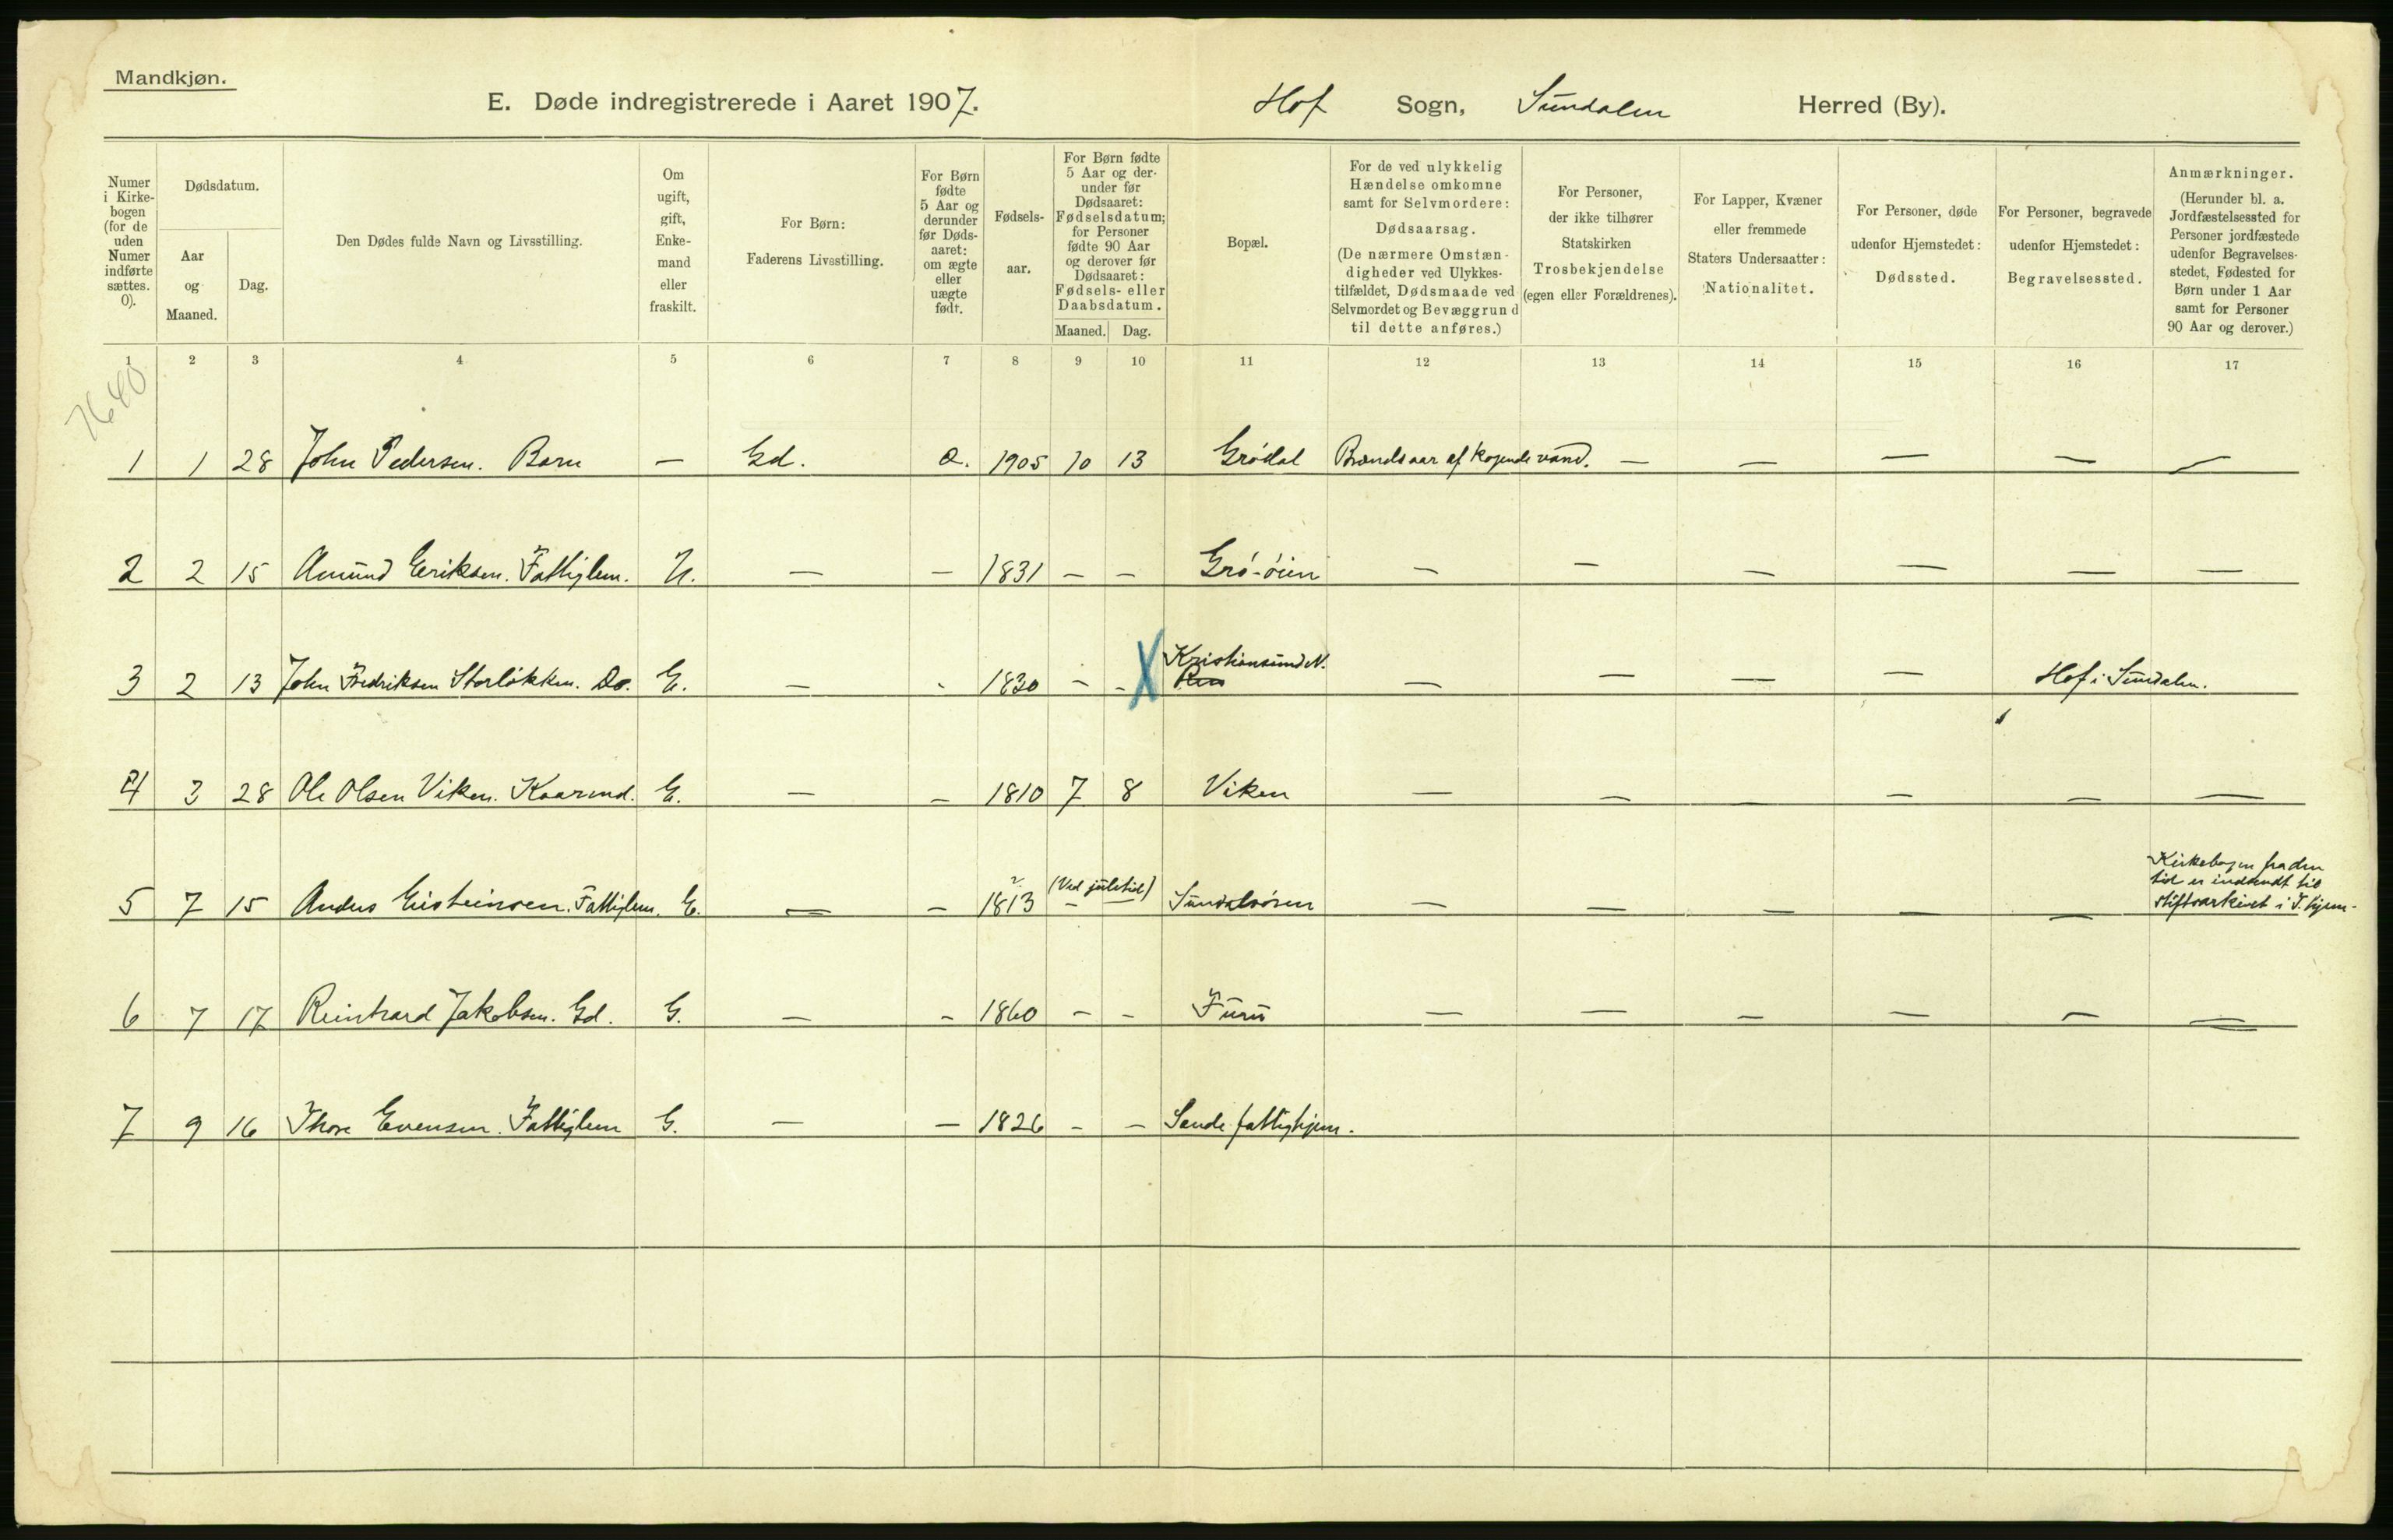 Mandkjøn.
E. Døde indregistrerede i Aaret 1907. Hof Sogn, Sundalen Herred (By).
Numer i Kirke-bogen (for de uden Numer indførte sættes. 0).
Dødsdatum.
Aar og Maaned.
Dag.
Den Dødes fulde Navn og Livsstilling.
Om ugift, gift, Enke-mand eller fraskilt.
For Børn: Faderens Livsstilling.
For Børn fødte 5 Aar og derunder før Døds-aaret: om ægte eller uægte født.
Fødsels-aar.
For Børn fødte 5 Aar og der-under før Dødsaaret: Fødselsdatum; for Personer fødte 90 Aar og derover før Dødsaaret: Fødsels- eller Daabsdatum.
Maaned. Dag.
Bopæl.
For de ved ulykkelig Hændelse omkomne samt for Selvmordere: Dødsaarsag. (De nærmere Omstæn-digheder ved Ulykkes-tilfældet, Dødsmaade ved Selvmordet og Bevæggrund til dette anføres.)
For Personer, der ikke tilhører Statskirken Trosbekjendelse (egen eller Forældrenes).
For Lapper, Kvæner eller fremmede Staters Undersaatter: Nationalitet.
For Personer, døde udenfor Hjemstedet: Dødssted.
For Personer, begravede udenfor Hjemstedet: Begravelsessted.
Anmærkninger. (Herunder bl. a. Jordfæstelsessted for Personer jordfæstede udenfor Begravelses-stedet, Fødested for Børn under 1 Aar samt for Personer 90 Aar og derover.)
1 2 3 4 5 6 7 8 9 10 11 12 13 14 15 16 17
7640
1 1 28 John Pedersen. Barn — Gd. 1905 10 13 Grødal Brandsaar af kogende vand. — — — — —
2 2 15 Amund Eriksen. Fattiglem. U. — — 1831 – – Grø-øien – – – — — —
3 2 13 John Fredriksen Storløkken. Do. E. — - 1830 - - X Kristiansund N. — — — — Hof i Sundalen.
4 3 28 Ole Olsen Viken. Kaarmd. E. — – 1810 7 8 Viken — – – – – —
5 7 15 Anders Eisteinsen. Fattiglem. E. — – 1813 (Ved juletid) Sundalsøren – – – – – Kirkebogen fra den
tid er indsendt til
stiftsarkivet i T.hjem-
6 7 17 Reinhard Jakobsen. Gd. G. — – 1860 – – Furu — — – – – —
7 9 16 Thore Evensen. Fattiglem G. — — 1826 – – Sande fattighjem.